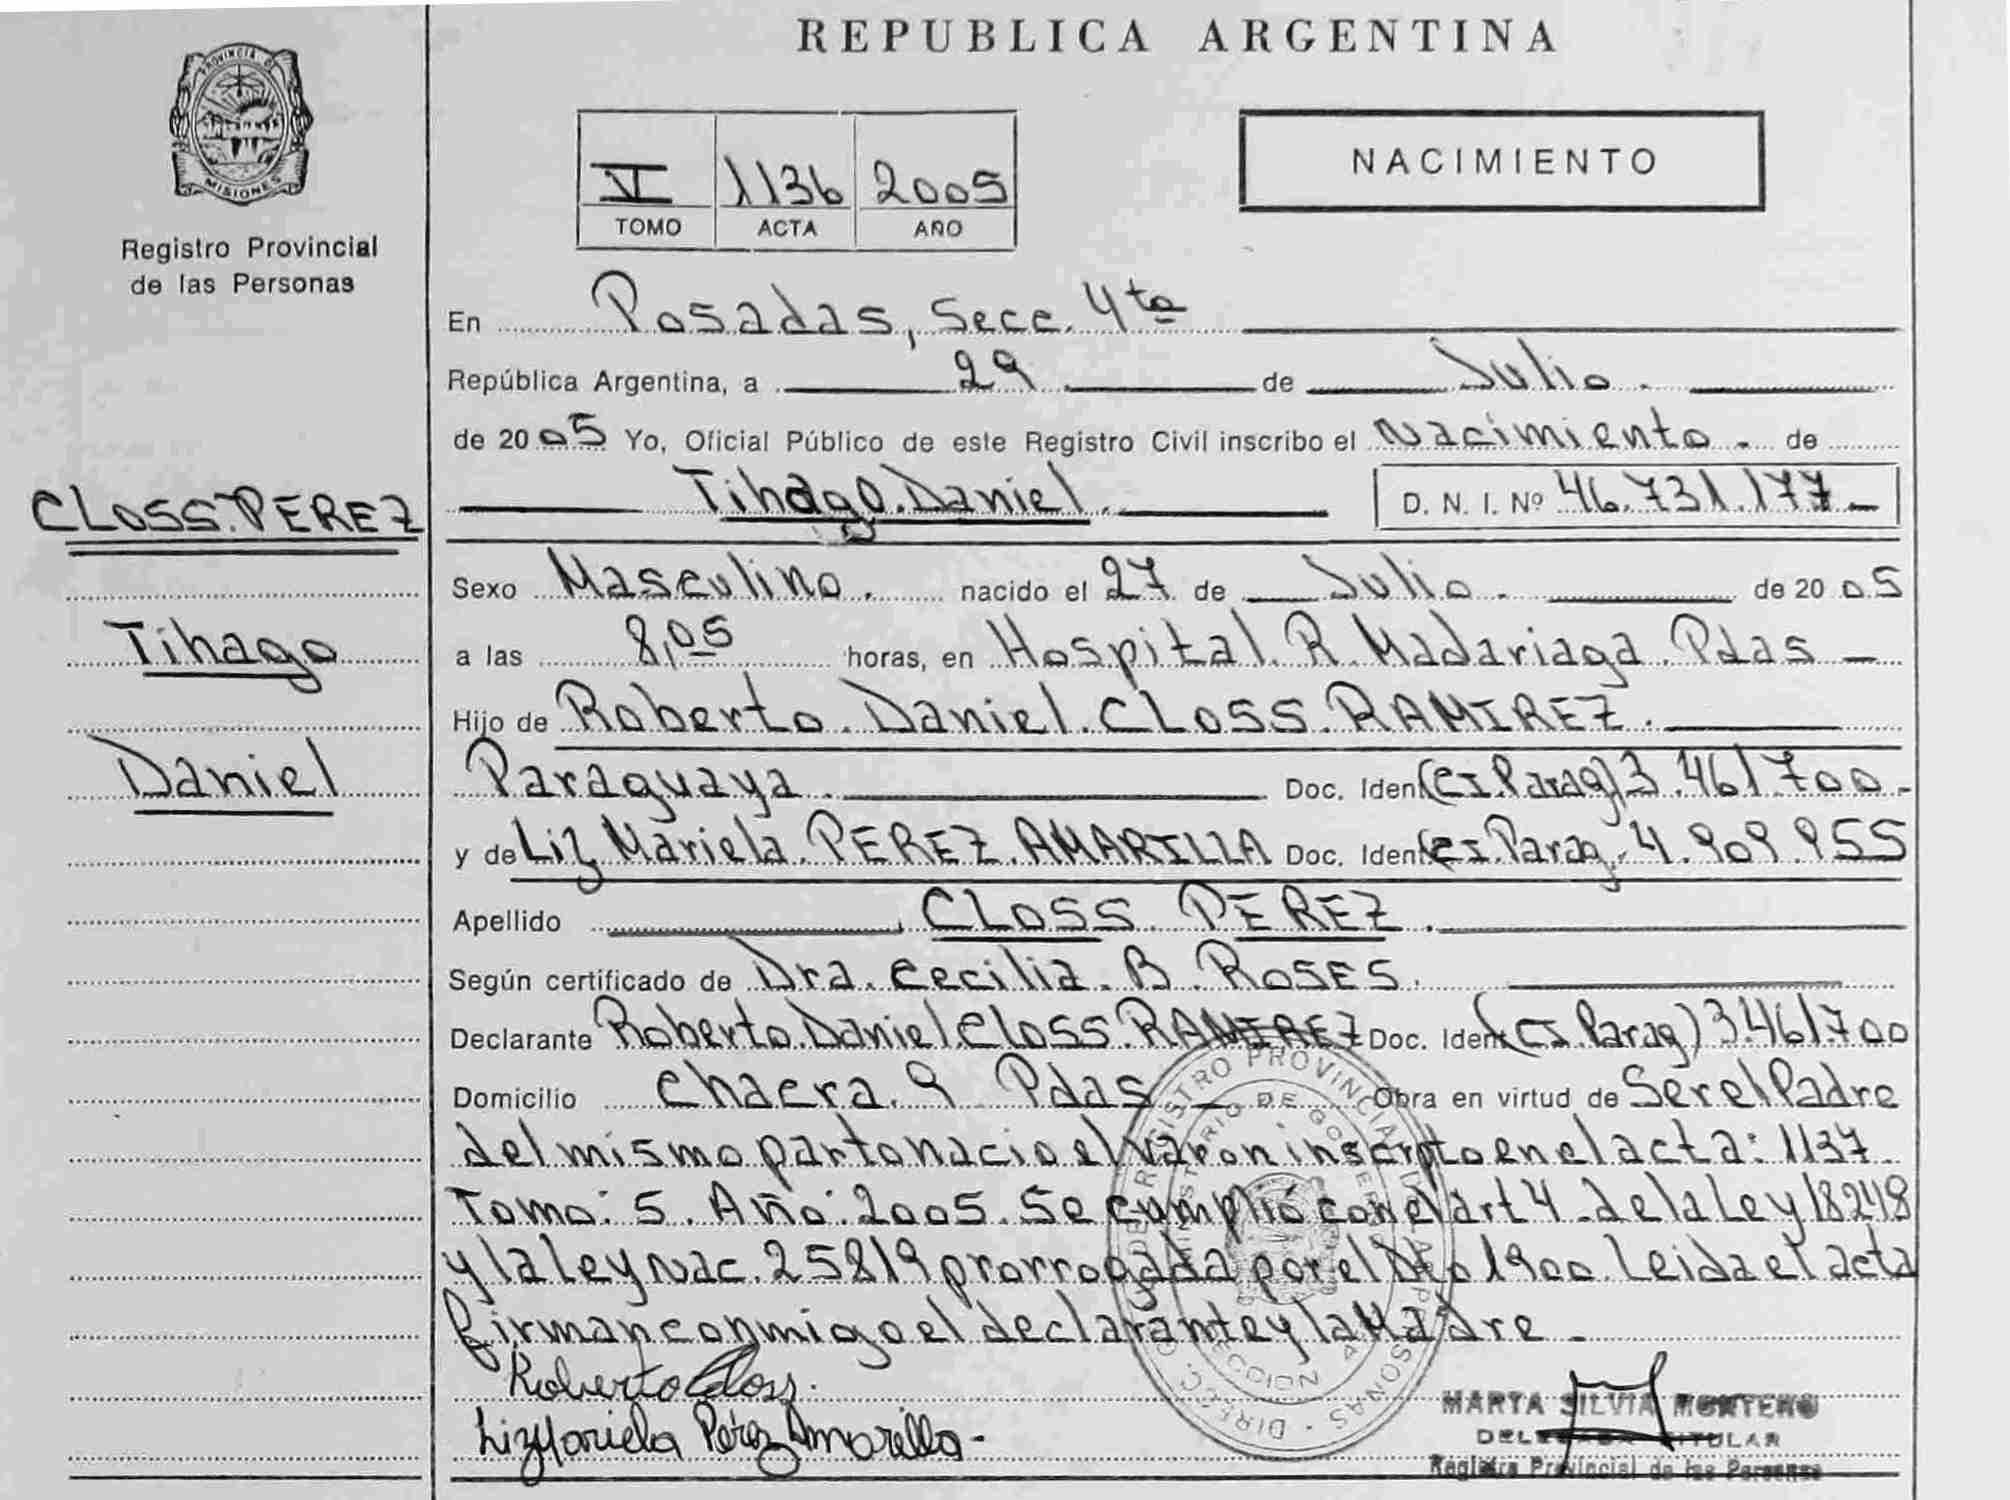 REPUBLICA ARGENTINA
PROVINCIA DE
MISIONES
Registro Provincial
de las Personas
VI 1136 2005
TOMO ACTA AÑO
NACIMIENTO
En Posadas, Secc. 4ta
República Argentina, a 29 de Julio.
de 2005 Yo, Oficial Público de este Registro Civil inscribo el Nacimiento. de
CLOSS PEREZ
Tihago Daniel. D. N. I. Nº 46.731.177-
Sexo Masculino. nacido el 27 de Julio. de 2005
Tihago
a las 8,05 horas, en Hospital R. Madariaga Pdas -
Hijo de Roberto Daniel CLOSS RAMIREZ.
Daniel
Paraguaya. Doc. Ident (CI. Parag) 3.461700.
y de Liz Mariela PEREZ AMARILLA Doc. Ident CI. Parag. 4.909.955
Apellido CLOSS PEREZ.
Según certificado de Dra. Cecilia B. ROSES.
Declarante Roberto Daniel CLOSS RAMIREZ Doc. Ident (CI. Parag) 3.461.700
Domicilio Chacra 9 Pdas - Obra en virtud de Ser el Padre
del mismo parto nacio el varon inscripto en el acta: 1137
Tomo: 5. Año: 2005. Se cumplió con el art 4 de la Ley 18248
y la Ley Nac. 25819 prorrogada por el Dto 1900. Leida el acta
firman conmigo el declarante y la Madre -
Roberto Closs.
Liz Mariela Pérez Amarilla -
MARTA SILVIA MONTERO
DELEGADA TITULAR
Registro Provincial de las Personas